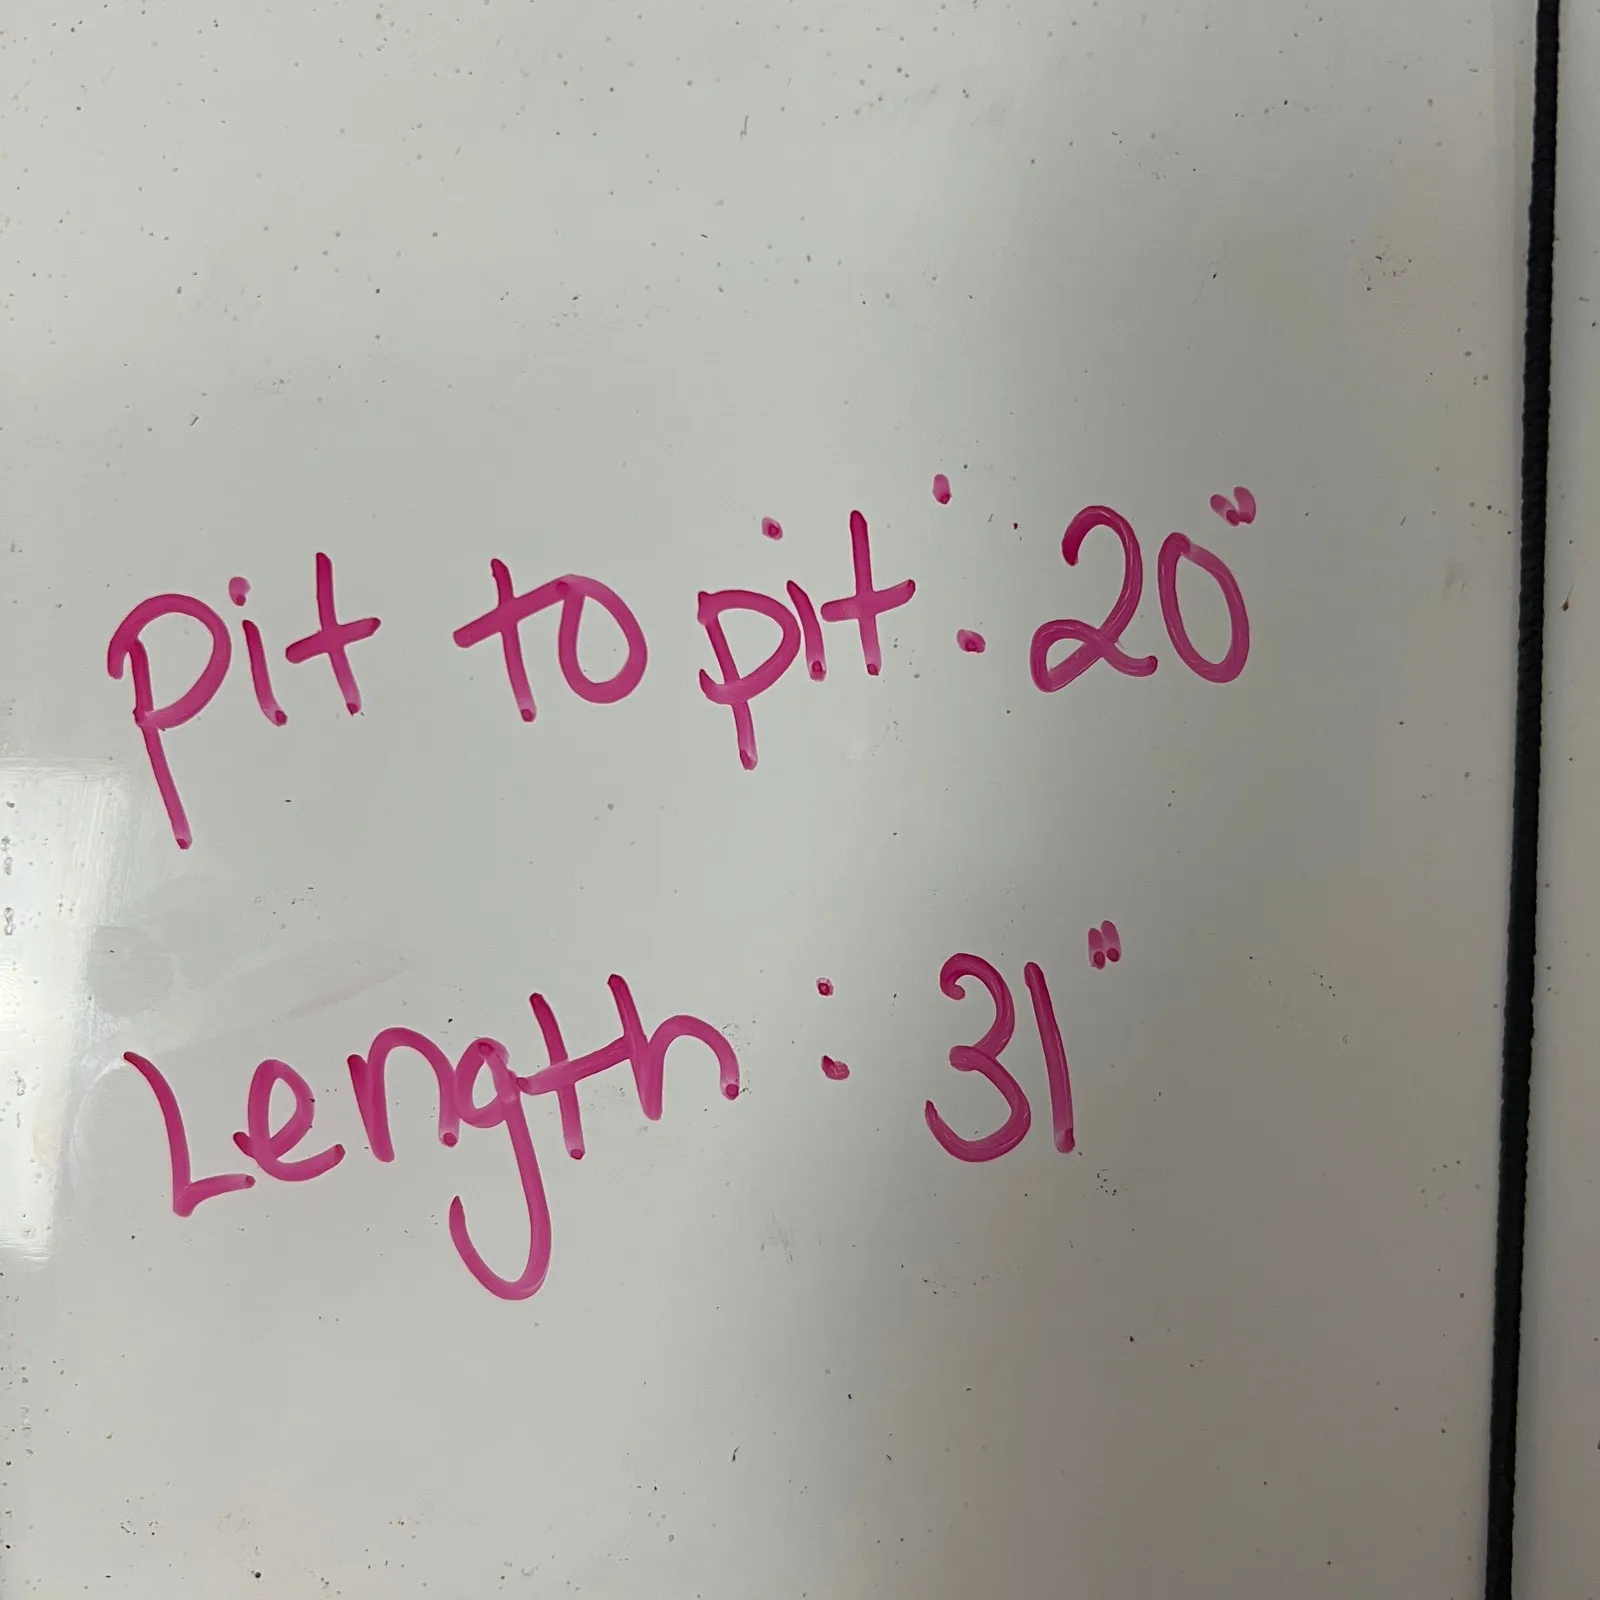 pit to pit: 20"
Length: 31"